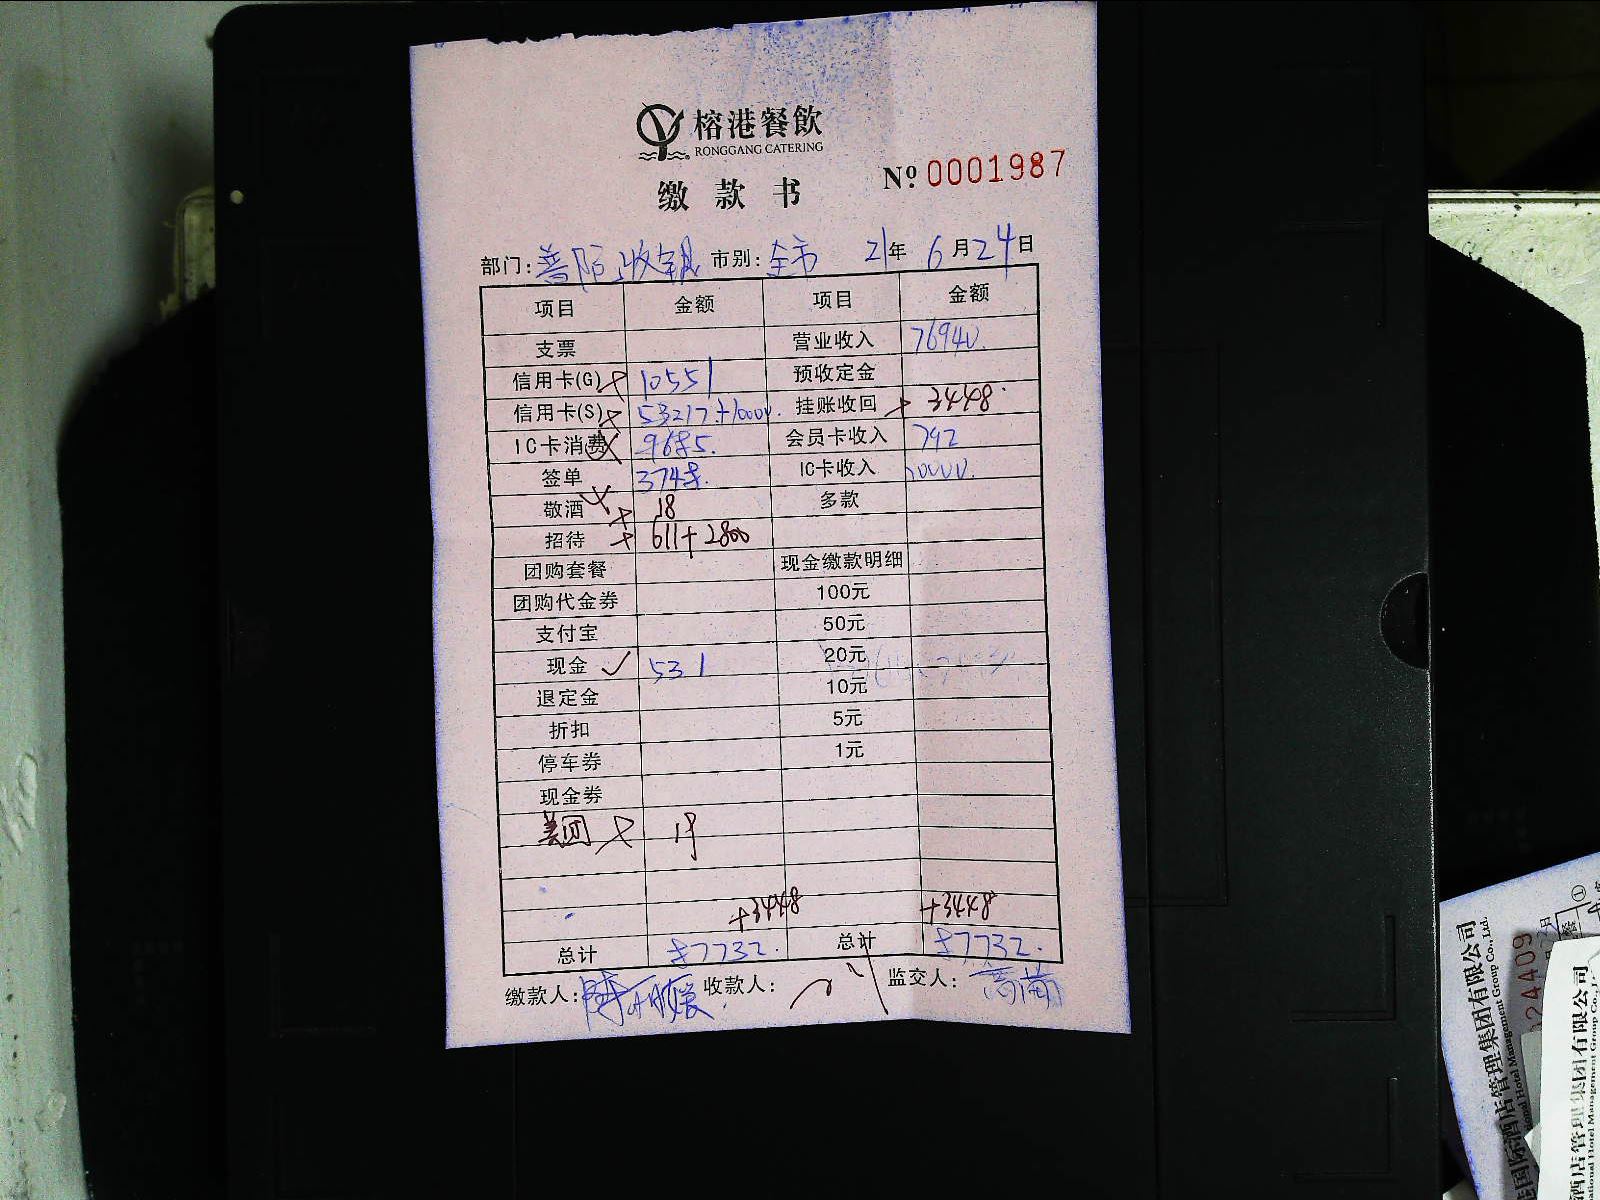 榕港餐飲
RONGGANG CATERING
缴款书 Nº 0001987
部门: 普陀收银 市别: 全市 21年 6月24日
项目 金额 项目 金额
支票 营业收入 76940.
信用卡(G) × 10551 预收定金
信用卡(S) × 53217+10000. 挂账收回 3448
IC卡消费 × 9685. 会员卡收入 792
签单 × 3748. IC卡收入 10000.
敬酒 × 18 多款
招待 × 611+2800
团购套餐 现金缴款明细
团购代金券 100元
支付宝 50元
现金 ✓ 531 20元
退定金 10元
折扣 5元
停车券 1元
现金券
美团 × 19
+3448 +3448
总计 87732. 总计 87732.
缴款人: 收款人: 监交人:
国际酒店管理集团有限公司
Hotel Management Group Co., Ltd.
24409
酒店管理集团有限公司
ational Hotel Management Group Co.,